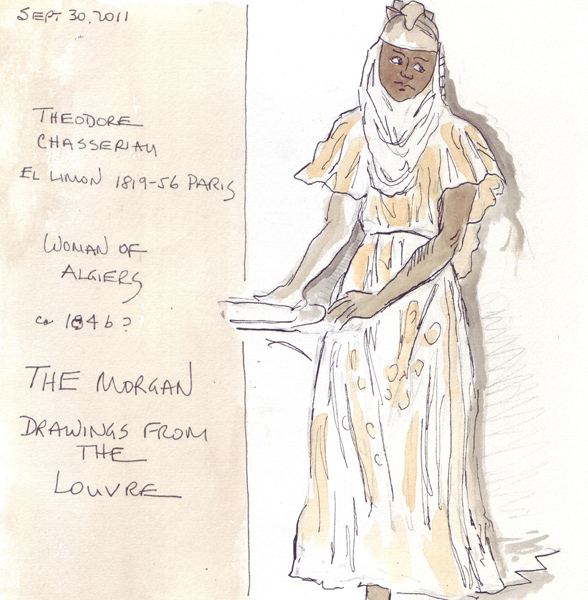 SEPT 30, 2011
THEODORE
CHASSERIAU
EL LIMON 1819-56 PARIS
WOMAN OF
ALGIERS
ca 1846?
THE MORGAN
DRAWINGS FROM
THE
LOUVRE